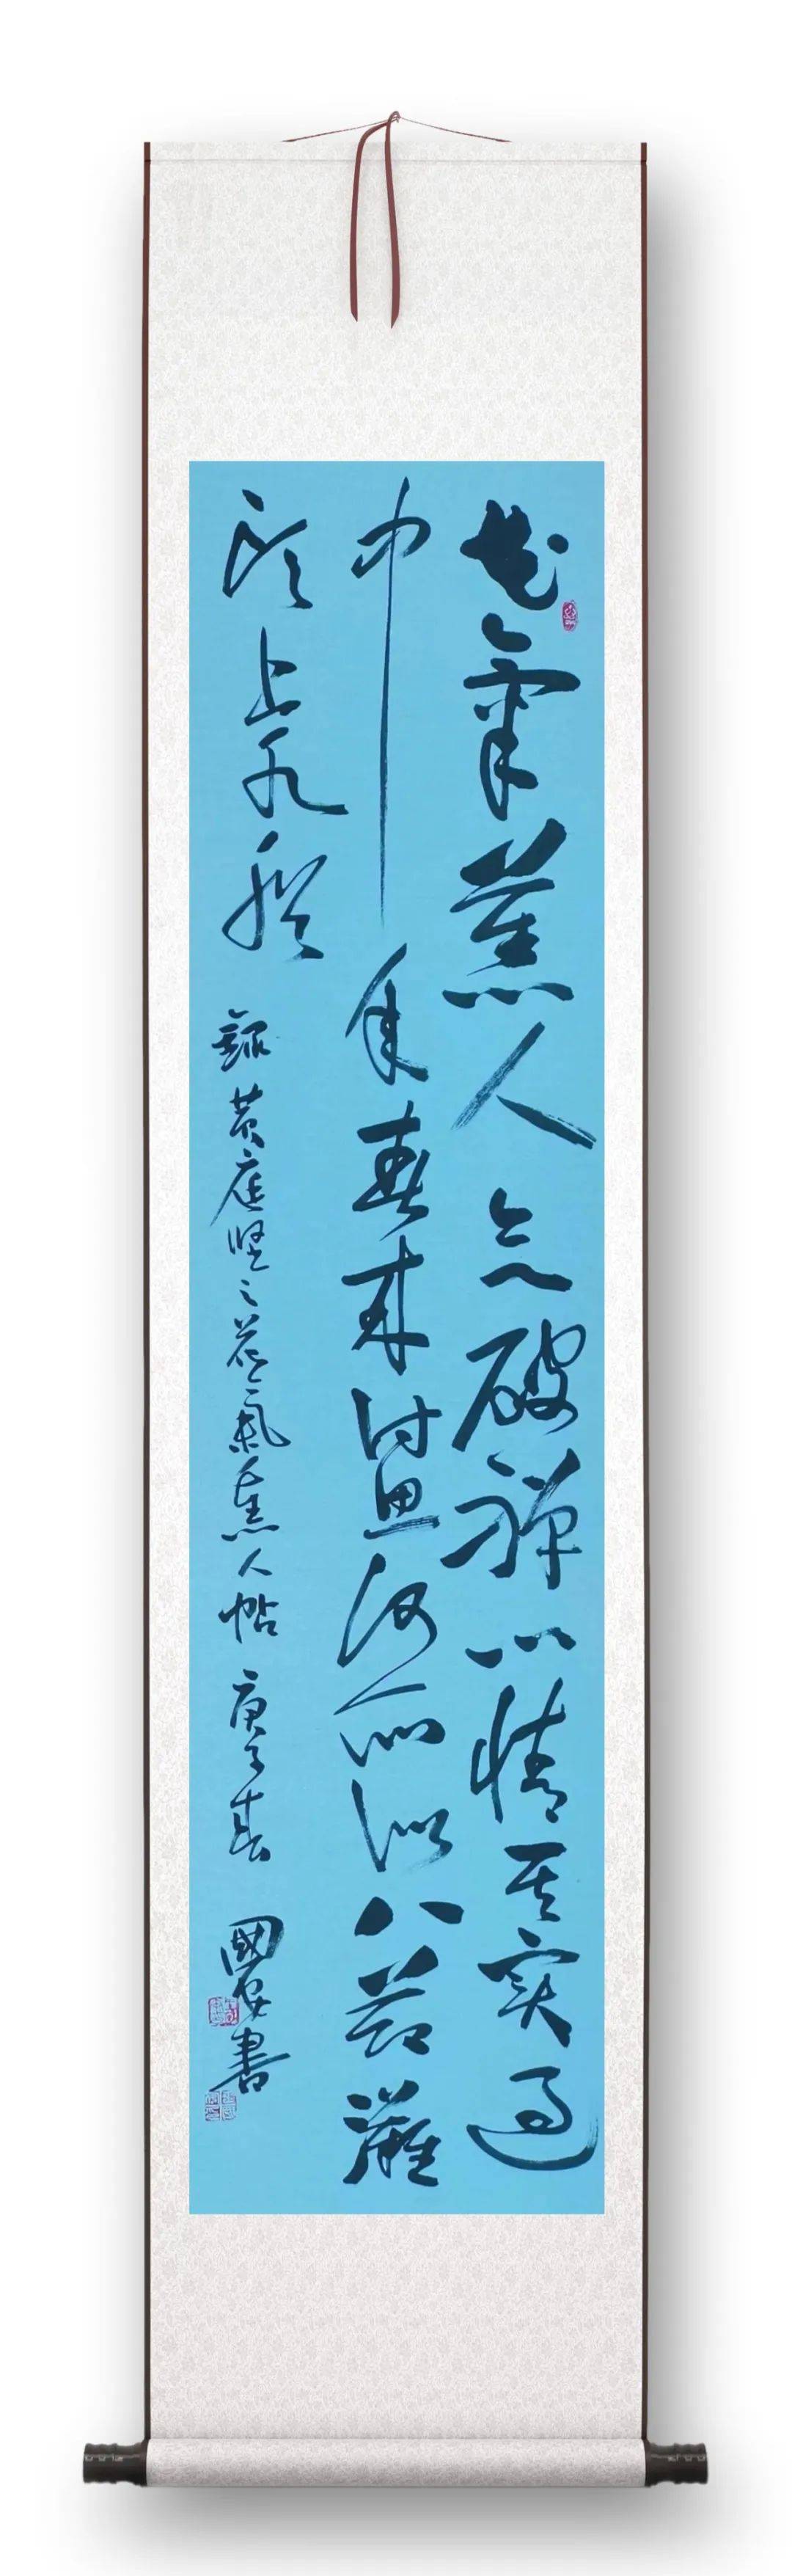 花氣薰人欲破禪心情其實過
中年春來詩思何所似八節灘
頭上水船 錄黃庭堅之花氣熏人帖 庚子春 國安書